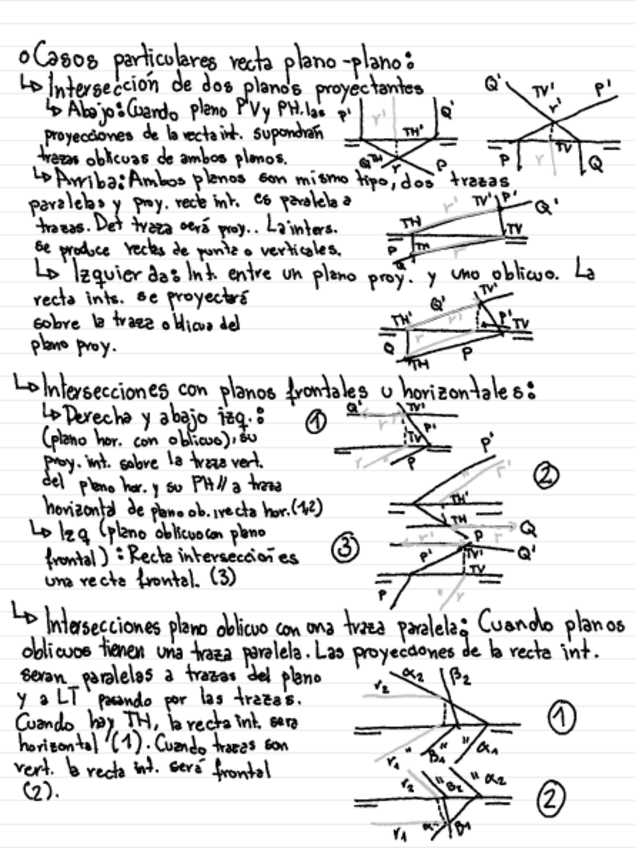 o Casos particulares recta plano-plano:
↳ Intersección de dos planos proyectantes
↳ Abajo: Cuando plano PV y PH. las
proyecciones de la recta int. supondrán
trazas oblicuas de ambos planos.
P' r' TH' Q'
Q TH r P
Q' TV' r' P'
P r TV Q
↳ Arriba: Ambos planos son mismo tipo, dos trazas
paralelas y proy. recta int. es paralela a
trazas. Det traza será proy.. La inters.
se produce rectas de punta o verticales.
TH r' TV' P' Q'
P TH r TV
Q
↳ Izquierda: Int. entre un plano proy. y uno oblicuo. La
recta ints. se proyectará
sobre la traza oblicua del
plano proy.
Q' TV'
TH' r' P' TV
Q TH P
↳ Intersecciones con planos frontales u horizontales:
↳ Derecha y abajo izq.:
(plano hor. con oblicuo), su
proy. int. sobre la traza vert.
del plano hor. y su PH // a traza
horizontal de plano ob. recta hor. (1,2)
↳ Izq (plano oblicuo con plano
frontal): Recta intersección es
una recta frontal. (3)
1 Q' r' TV' P'
TV
r P
2 P' r'
TH'
TH r Q
P
3 r' P' TV' Q'
TV
P r
↳ Intersecciones plano oblicuo con una traza paralela: Cuando planos
oblicuos tienen una traza paralela. Las proyecciones de la recta int.
seran paralelas a trazas del plano
y a LT pasando por las trazas.
Cuando hay TH, la recta int. sera
horizontal (1). Cuando trazas son
vert. la recta int. será frontal
(2).
r₂ α₂ β₂
r₁ " β₁ " α₁
1
r₂ " β₂ " α₂
r₁ α₁ β₁
2